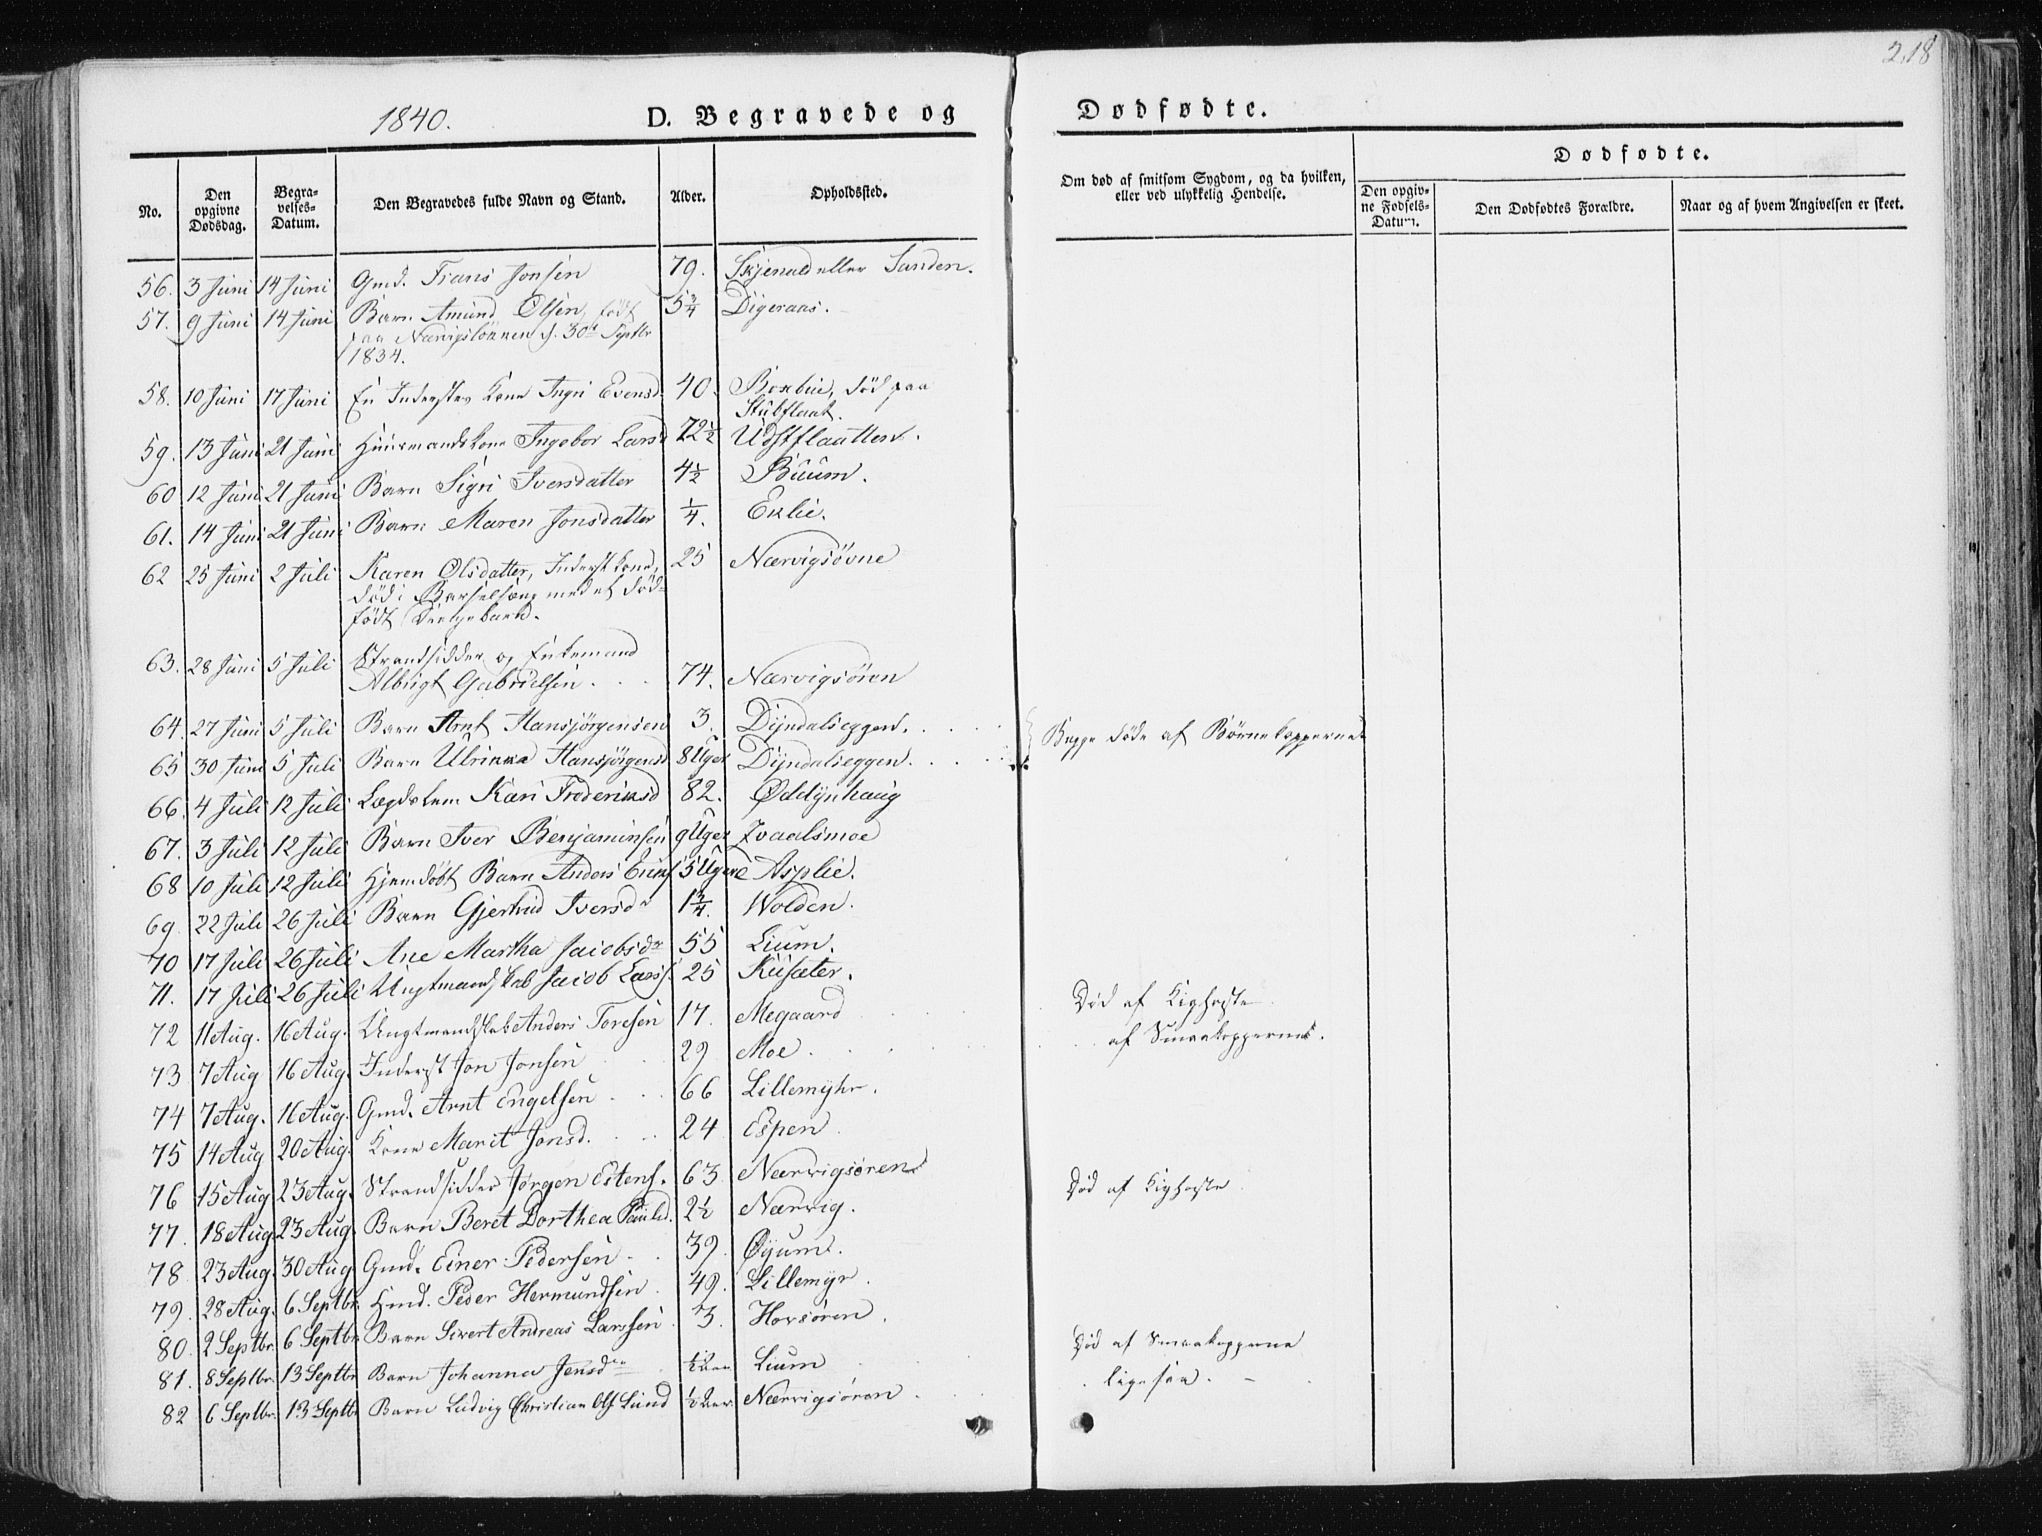 218
1840.
D. Begravede og Dødfødte.
No.
Den opgivne Dødsdag.
Begravelses-Datum.
Den Begravedes fulde Navn og Stand.
Alder.
Opholdssted.
Om død af smitsom Sygdom, og da hvilken, eller ved ulykkelig Hendelse.
Dødfødte.
Den opgivne Fødsels-Datum.
Den Dødfødtes Forældre.
Naar og af hvem Angivelsen er skeet.
56. 3 Juni 14 Juni Gmd. Frans Jonsen 79. eller Sanden.
57. 9 Juni 14 Juni Barn Amund Olsen, født 5¾ Digeraas.
paa 30te Septbr
1834.
58. 10 Juni 17 Juni En Inderstes Kone Ingri Evensd. 40. død paa
Stubflaat.
59. 13 Juni 21 Juni Huusmandskone Ingebor Larsd 72½
60 12 Juni 21 Juni Barn Sigri Iversdatter 4½ Buum.
61. 14 Juni 21 Juni Barn Maren Jonsdatter ¼. Eklie.
62 25 Juni 2 Juli Karen Olsdatter, Inderst Kone, 25 Nærvigsövne
død i Barselseng med et død-
født Drengebarn.
63. 28 Juni 5 Juli Strandsidder og Enkemand
Albrigt Gabrielsen . . . 74. Nærvigsøren
64. 27 Juni 5 Juli Barn Arnt Hansjörgensen 3. Dÿndalseggen. . . . Begge døde af Børnekopperne
65 30 Juni 5 Juli Barn Ulrikka Hansjörgensd 8 Uger Dÿndalseggen. . . .
66. 4 Juli 12 Juli Lægdslem Kari Frederiksd 82. Øddÿnhaug
67. 3 Juli 12 Juli Barn Iver Benjaminsen 9 Uger Qvaalsmoe
68 10 Juli 12 Juli Hjemdøbt Barn Anders Eriks. 5 Uger Asplie.
69. 22 Juli 26 Juli Barn Gjertrud Iversdr 1¾. Wolden.
70 17 Juli 26 Juli Ane Martha Jacobsdr 55 Lium.
71. 17 Juli 26 Juli Ungtmandskab Jacob Larss. 25 Kusæter.
72 11 Aug. 16 Aug. Ungtmandskab Anders Toresen 17. Megaard Død af Kighoste
73 7 Aug 16 Aug. Inderst Jon Jonsen 29 Moe . . . af Smaakopperne.
74 7 Aug. 16 Aug. Gmd. Arnt Engelsen . . . 66 Lillemÿhr.
75 14 Aug 20 Aug. Kone Marit Jonsd. . . . 24 Espen
76 15 Aug 23 Aug. Strandsidder Jørgen Estens. 63 Nærvigsøren
77. 18 Aug. 23 Aug. Barn Beret Dorthea Paulsd. 2½ Nærvig. Død af Kighoste
78 23 Aug. 30 Aug Gmd. Einer Pedersen . . 39. Øyum.
79. 28 Aug. 6 Septbr. Hmd. Peder Hermundsen . 49. Lillemÿr.
80. 2 Septbr. 6 Septbr Barn Sivert Andreas Larssen 3. Hovsøren.
81. 8 Septbr. 13 Septbr Barn Johanna Jensdr ½ Aar Lium Død af Smaakopperne
82 6 Septbr. 13 Septbr Barn Ludvig Christian Ols. Lund ½ Aar. Nærvigsøren . . . ligesaa.